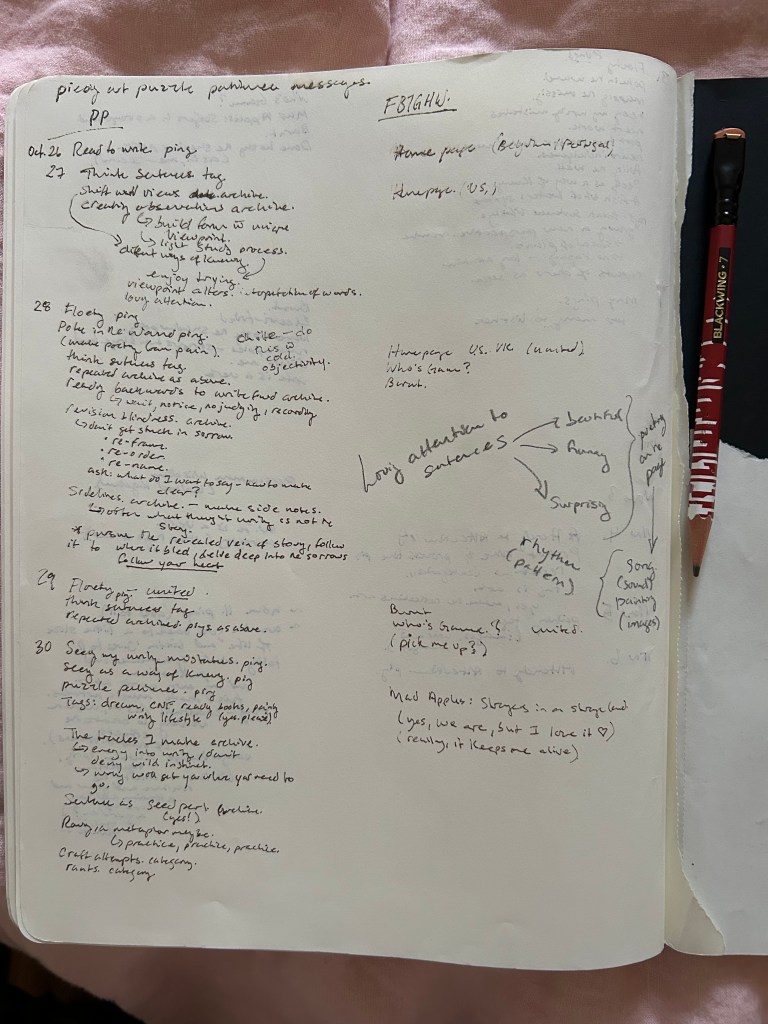 picay out puzzle patience messages.
PP
Oct. 26 Ready to write ping
27 Think sentences tag
shift wall views archive.
creating observations archive.
↳ build form w unique
viewpoint.
↳ light study process.
different ways of knowing.
enjoy trying.
viewpoint alters interpretation of words.
loving attention.
28 Floety ping
Poke in the wound ping.
(make poetry from pain).
think sentences tag.
repeated archive as above.
reading backwards to write fwd archive.
↳ wait, notice, no judging, recording
write - do
this w
cold
objectivity.
revision blindness. archive.
↳ don't get stuck in sorrow.
• re-frame.
• re-order.
• re-name.
ask: what do I want to say - how to make
clear?
Sidelines. archive. - make side notes.
↳ often what thing it writing is not the
story.
* pursue the revealed vein of story, follow
it to where it bled, delve deep into the sorrows
follow your heart
29 Floety ping - united.
think sentences tag
repeated archived pings as above.
30 Seeing my writing mistakes. ping.
seeing as a way of knowing. ping
puzzle patience. ping
Tags: dream, CNF, reading books, painting
writing lifestyle (yes please)
The tracks I make archive.
↳ energy into writing, don't
deny wild instinct.
↳ wrong work get you where you need to
go.
Sentence as seed pearl archive.
(yes!)
Rowing, a metaphor maybe.
↳ practice, practice, practice.
Craft attempts. category.
rants. category
FBTGHW.
Home page (Belgium/Portugal)
Homepage (US,)
Homepage US. UK (united)
Who's Game?
Burnt.
Loving attention to
sentences
beautiful
funny
Surprising
poetry
on the
page
rhythm
(pattern)
song
(sound)
painting
(images)
Burnt
Who's Game. } united.
(pick me up?)
Mad Apples: Strangers in a strange land
(yes, we are, but I love it ♡)
(really, it keeps me alive)
BLACKWING • 7